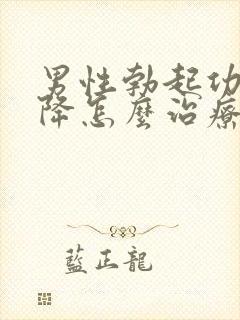 男性勃起功
降怎麼治療
藍正龍